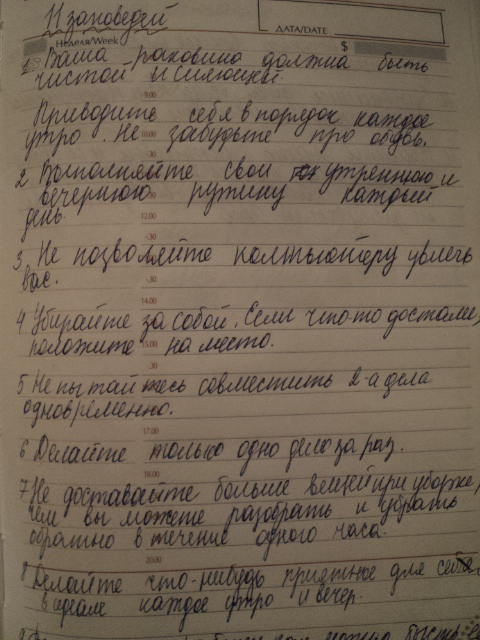 11 заповедей
ДАТА/DATE
НЕДЕЛЯ/Week
$
1. Ваша раковина должна быть
чистой и сияющей.
9.00
Приводите себя в порядок каждое
утро. Не забудьте про обувь.
10.00
30
2 Выполняйте свои утреннюю и
вечернюю рутину каждый
день.
12.00
30
3. Не позволяйте компьютеру увлечь
вас.
30
14.00
4 Убирайте за собой. Если что-то достали,
положите на место.
15.00
30
5 Не пытайтесь совместить 2-а дела
одновременно.
17.00
6 Делайте только одно дело за раз.
18.00
7 Не доставайте больше вещей при уборке,
чем вы можете разобрать и убрать
обратно в течение одного часа.
20.00
8 Делайте что-нибудь приятное для себя,
в идеале каждое утро и вечер.
можно быстрее